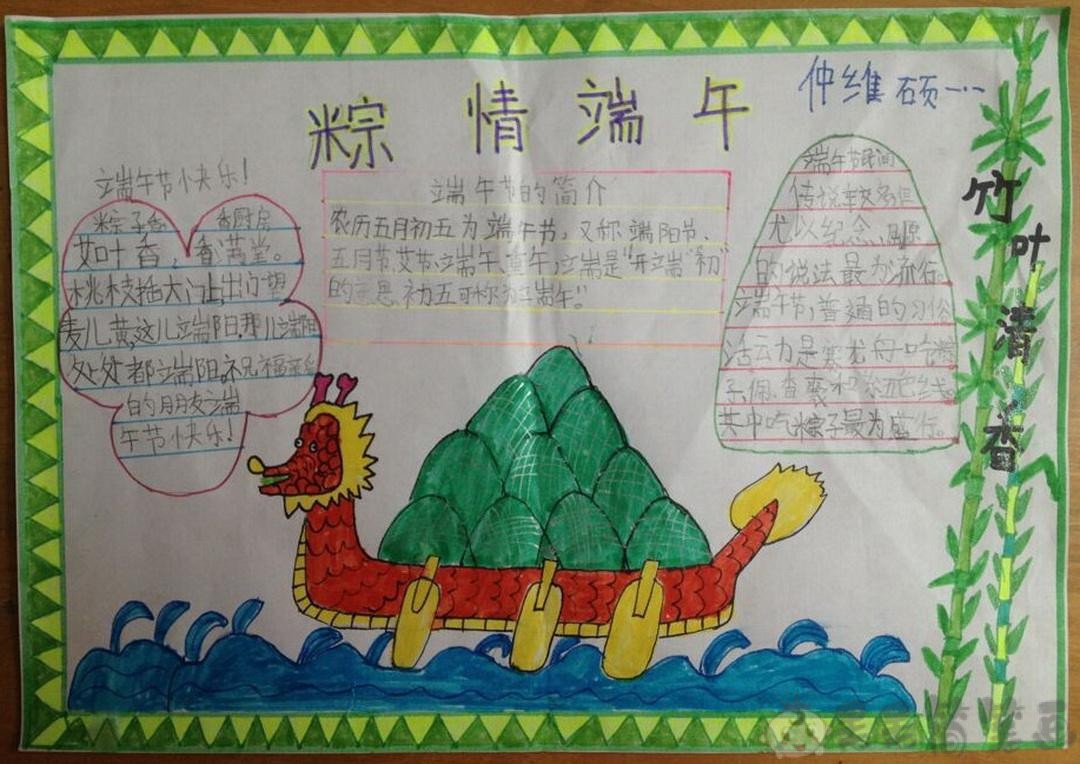 粽 情 端 午
仲维硕一·一
端午节快乐!
粽子香 香厨房
艾叶香,香满堂。
桃枝插大门上,出门一望
麦儿黄,这儿端阳,那儿端阳
处处都端阳。祝福亲爱
的朋友端
午节快乐!
端午节的简介
农历五月初五为端午节,又称端阳节、
五月节、艾节、端午、重午,端是"开端""初"
的意思.初五可称为"端午"。
端午节民间
传说较多但
尤以纪念屈原
的说法最为流行。
端午节,普通的习俗
活动是赛龙舟、吃粽
子、佩香囊和系五色线。
其中吃粽子最为盛行。
竹叶清香